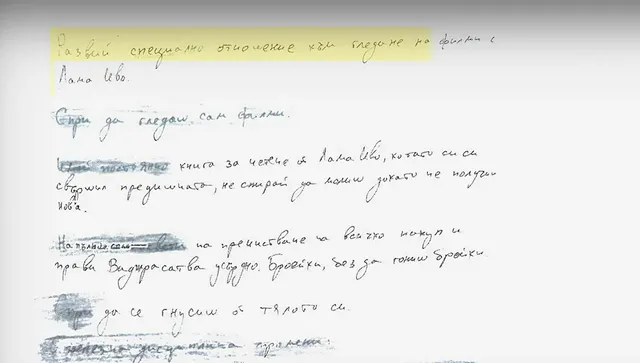 Развий специално отношение към гледане на филми с
Лама Иво.
Спри да гледаш сам филми.
книга за четене от Лама Иво, когато си си
свършил предишната, не спирай да молиш докато не получиш
нова.
на пречистване на всичко
прави Ваджрасатва усърдно. Бройки, без да гониш бройки.
Спри да се гнусиш от тялото си.
дисциплина